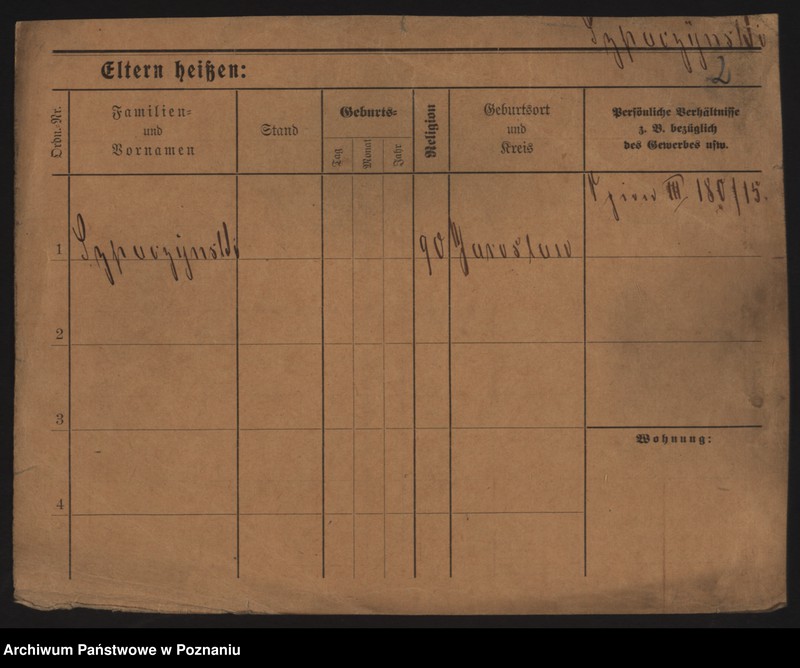 Szpaczynski
2
Eltern heißen:
Ordn.-Nr.
Familien-
und
Vornamen
Stand
Geburts-
Tag
Monat
Jahr
Religion
Geburtsort
und
Kreis
Persönliche Verhältnisse
z. B. bezüglich
des Gewerbes usw.
III 180/15.
1
Szpaczynski
90
Jaroslaw
2
3
Wohnung:
4
Archiwum Państwowe w Poznaniu